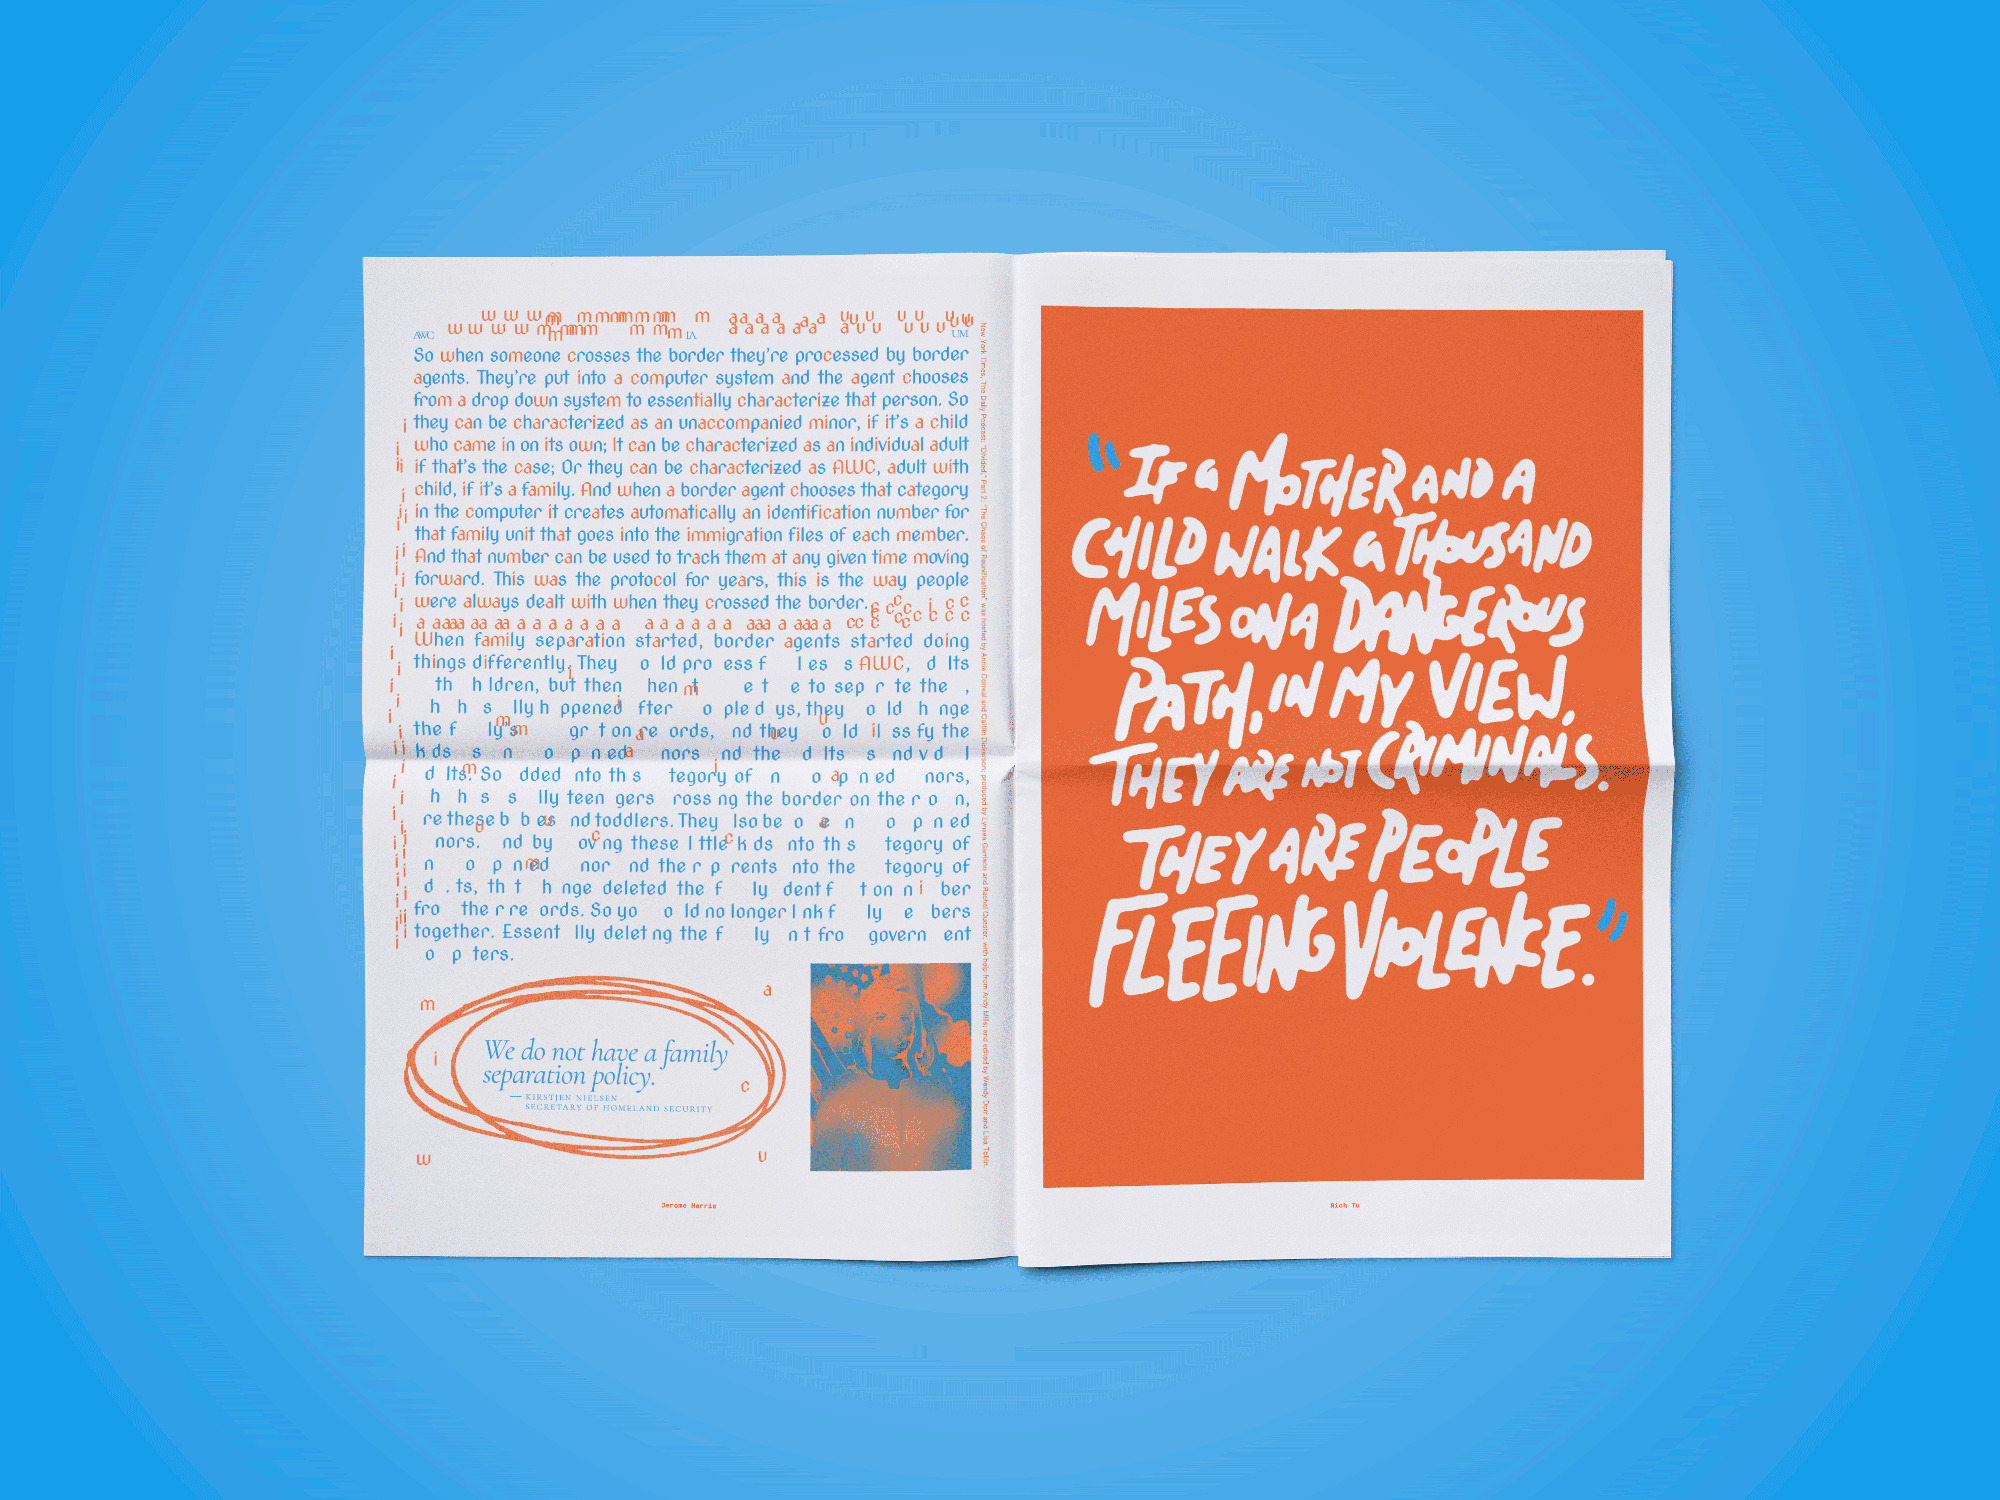 AWC IA UM
So when someone crosses the border they're processed by border
agents. They're put into a computer system and the agent chooses
from a drop down system to essentially characterize that person. So
they can be characterized as an unaccompanied minor, if it's a child
who came in on its own; It can be characterized as an individual adult
if that's the case; Or they can be characterized as AWC, adult with
child, if it's a family. And when a border agent chooses that category
in the computer it creates automatically an identification number for
that family unit that goes into the immigration files of each member.
And that number can be used to track them at any given time moving
forward. This was the protocol for years, this is the way people
were always dealt with when they crossed the border.
When family separation started, border agents started doing
things differently. They o ld pro ess f l es s AWC, d lts
th h ldren, but then hen t e t e to sep r te the ,
h h s lly h ppened fter o ple d ys, they o ld h nge
the f ly's gr t on re ords, nd they o ld il ss fy the
k ds s n o p n ed nors nd the d lts s nd v d l
d lts. So dded nto th s tegory of n o ap n ed nors,
h h s s lly teen gers ross ng the border on the r o n,
re these b b es nd toddlers. They lso be o e n o p n ed
nors. nd by ov ng these l ttle k ds nto th s tegory of
n o p n ed nor nd the r p rents nto the tegory of
d . ts, th t h nge deleted the f ly dent f t on n i ber
fro the r re ords. So yo o ld no longer l nk f ly e bers
together. Essent lly delet ng the f ly n t fro govern ent
o p ters.
m a
We do not have a family
separation policy.
i c
— KIRSTJEN NIELSEN
SECRETARY OF HOMELAND SECURITY
w u
Jerome Harris
New York Times, The Daily Podcast: "Divided," Part 2: "The Chaos of Reunification" was hosted by Annie Correal and Caitlin Dickerson; produced by Lynsea Garrison and Rachel Quester, with help from Andy Mills; and edited by Wendy Dorr and Lisa Tobin.
"IF a MOTHER AND A
CHILD WALK a THOUSAND
MILES ON A DANGEROUS
PATH, IN MY VIEW,
THEY ARE NOT CRIMINALS.
THEY ARE PEOPLE
FLEEING VIOLENCE."
Rich Tu